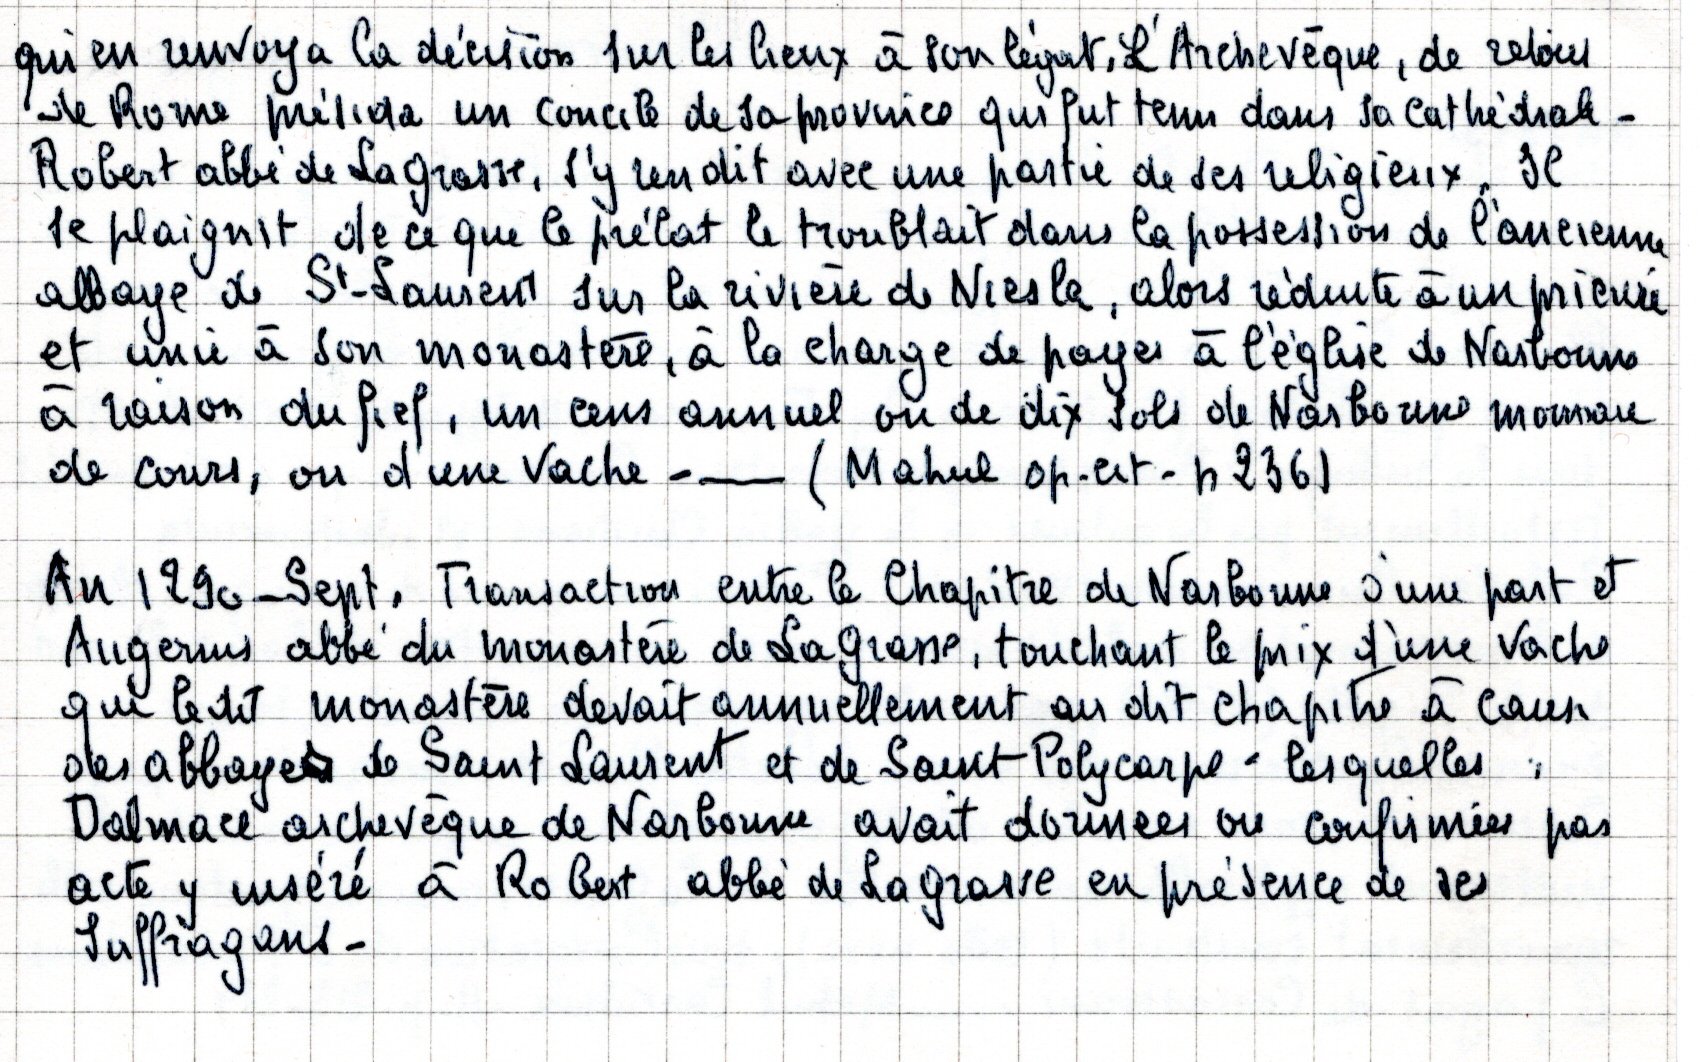 qui en renvoya la décision sur les lieux à son légat. L'Archevêque, de retour
de Rome présida un concile de sa province qui fut tenu dans sa cathédrale -
Robert abbé de Lagrasse, s'y rendit avec une partie de ses religieux. Il
se plaignit de ce que le prélat le troublait dans la possession de l'ancienne
abbaye de St-Laurent sur la rivière de Niesle, alors réduite à un prieuré
et unie à son monastère, à la charge de payer à l'église de Narbonne
à raison du fief, un cens annuel ou de dix sols de Narbonne monnaie
de cours, ou d'une vache - — (Mahul op. cit - p 236)
An 1290 - Sept. Transaction entre le Chapitre de Narbonne d'une part et
Augerius abbé du monastère de LaGrasse, touchant le prix d'une vache
que ledit monastère devait annuellement au dit chapitre à cause
des abbayes de Saint Laurent et de Saint-Polycarpe - lesquelles
Dalmace archevêque de Narbonne avait données ou confirmées par
acte y inséré à Robert abbé de Lagrasse en présence de ses
suffragans -